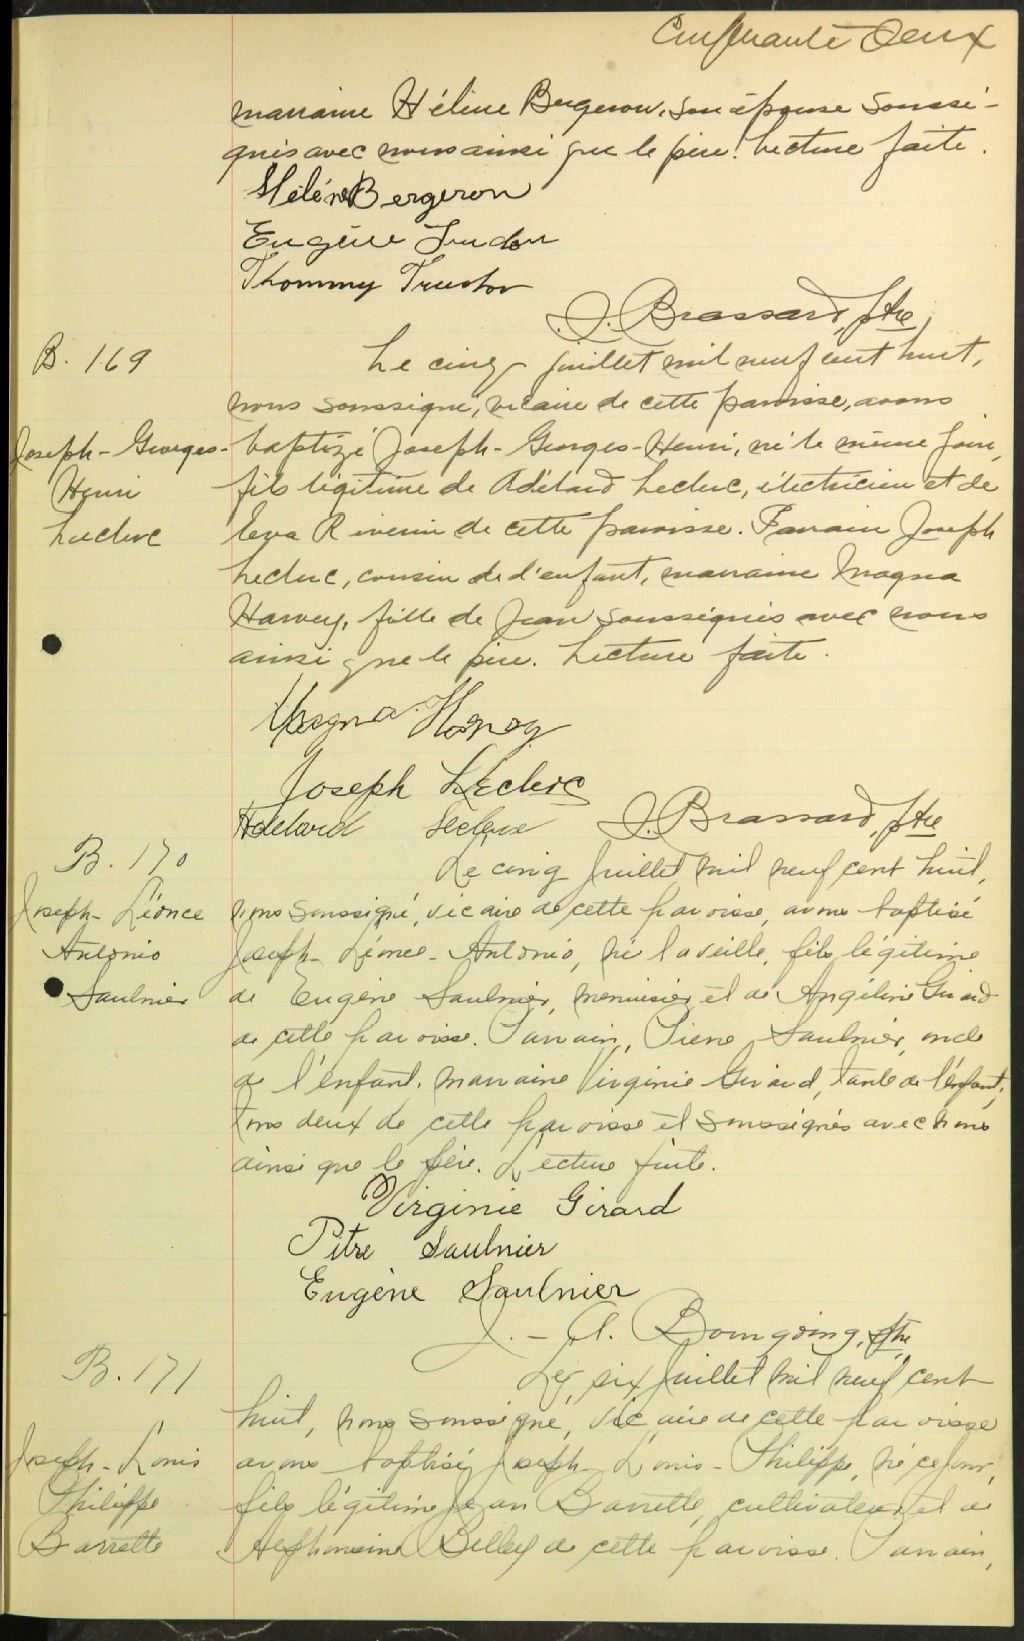 Cinquante Deux
marraine Hélène Bergeron, son épouse soussi-
gnés avec nous ainsi que le père. Lecture faite.
Hélène Bergeron
Eugène
Thommy
J. Brassard, ptre
B. 169
Le cinq juillet mil neuf cent huit,
nous soussigné, vicaire de cette paroisse, avons
Joseph-Georges-
baptizé Joseph-Georges-Henri, né le même jour,
Henri
fils légitime de Adélard Leclerc, électricien et de
Leclerc
de cette paroisse. Parrain Joseph
Leclerc, cousin de d'enfant, marraine Magna
Harvey, fille de Jean soussignés avec nous
ainsi que le père. Lecture faite.
Magna Harvey
Joseph Leclerc
Adelard Leclerc J. Brassard, ptre
B. 170
Le cinq Juillet mil neuf cent huit,
Joseph-Léonce
nous soussigné, vicaire de cette paroisse, avons baptisé
Antonio
Joseph-Léonce-Antonio, né la veille, fils légitime
Saulnier
de Eugène Saulnier, menuisier et de Angéline Girard
de cette paroisse. Parrain, Pierre Saulnier, oncle
de l'enfant, marraine Virginie Girard, tante de l'enfant,
tous deux de cette paroisse et soussignés avec nous
ainsi que le père. Lecture faite.
Virginie Girard
Pitre Saulnier
Eugène Saulnier
J.-A. Bourgoing, ptre
B. 171
Le six Juillet mil neuf cent
huit, nous soussigné, vicaire de cette paroisse
Joseph-Louis
avons baptisé Joseph-Louis-Philippe, né ce jour,
Philippe
fils légitime Jean Barrette, cultivateur et de
Barrette
de cette paroisse. Parrain,